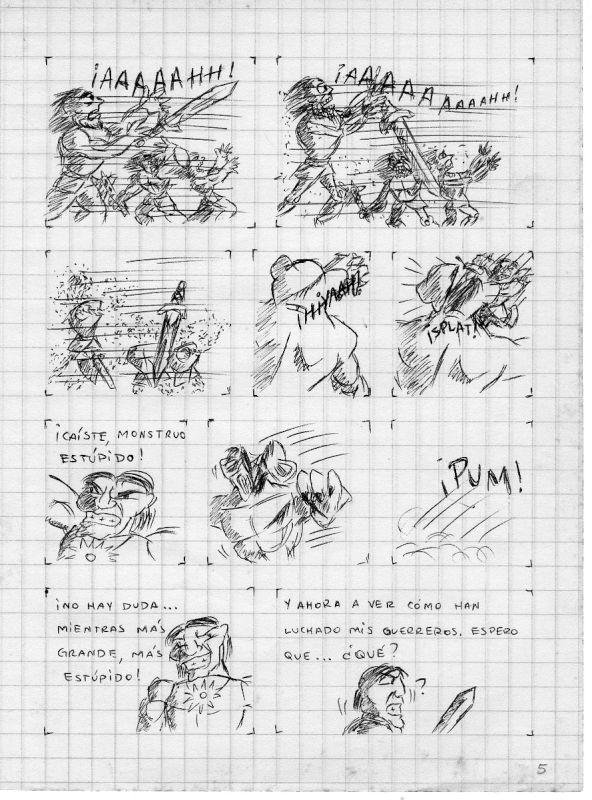 ¡AAAAAHH!
¡AAAAAA AAAAAHH!
¡HIYAAH!
¡SPLAT!
¡CAÍSTE, MONSTRUO
ESTÚPIDO!
¡PUM!
¡NO HAY DUDA...
MIENTRAS MÁS
GRANDE, MÁS
ESTÚPIDO!
Y AHORA A VER CÓMO HAN
LUCHADO MIS GUERREROS. ESPERO
QUE... ¿QUÉ?
?
5